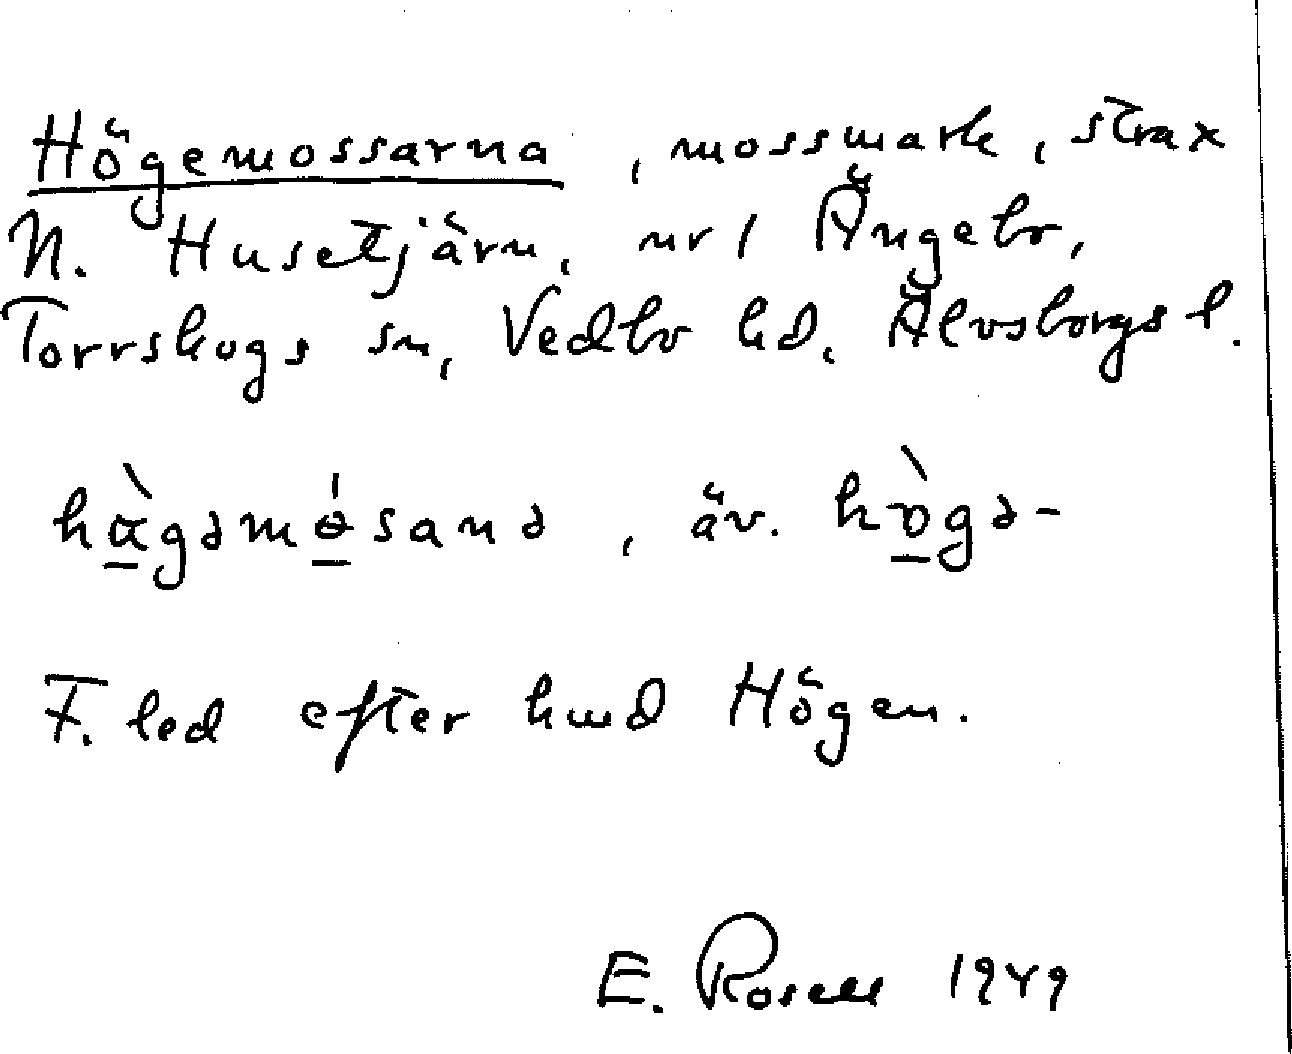 Högemossarna, mossmark, strax
N. Husetjärn, nr 1 Ängebo,
Torrskogs sn, Vedbo hd. Älvsborgs l.
hàgəmɵ́sanə, äv. hògə-
F. led efter hmd Högen.
E. Rosell 1949